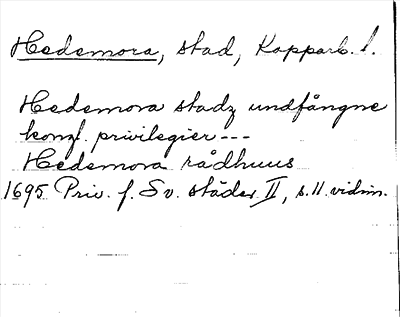 Hedemora, stad, Kopparb. l.
Hedemora stadz undfångne
kongl. privilegier ---
Hedemora rådhuus
1695 Priv. f. Sv. städer II, s. 11. vidim.